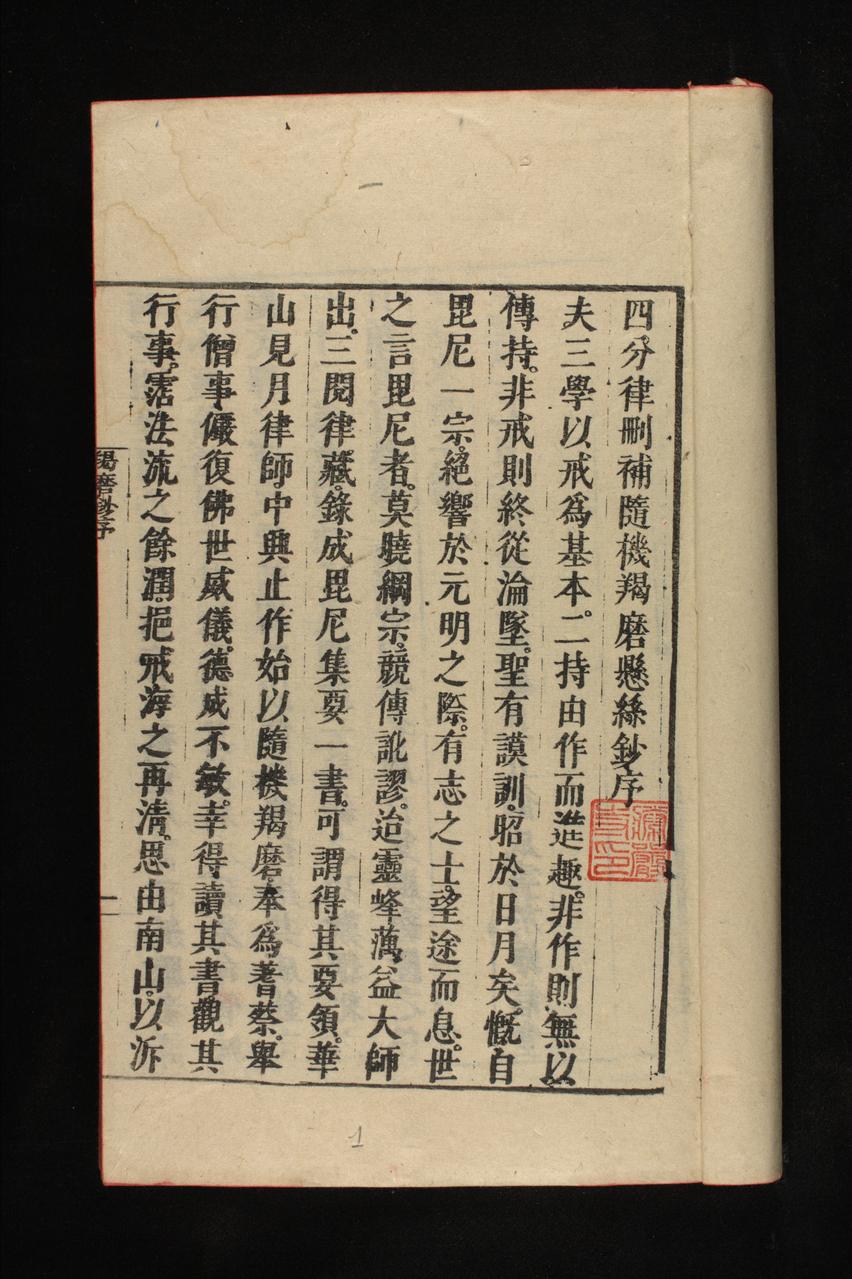 四分律刪補隨機羯磨懸絲鈔序
夫三學以戒爲基本。二持由作而進趣。非作則無以
傳持。非戒則終從淪墜。聖有謨訓。昭於日月矣。慨自
毘尼一宗。絕響於元明之際。有志之士。望途而息。世
之言毘尼者。莫曉綱宗。競傳訛謬。迨靈峰蕅益大師
出。三閱律藏。錄成毘尼集要一書。可謂得其要領。華
山見月律師。中興止作。始以隨機羯磨奉爲蓍蔡。舉
行僧事。儼復佛世威儀。德威不敏。幸得讀其書。觀其
行事。霑法流之餘潤。挹戒海之再清。思由南山。以泝
羯磨鈔序
一
1